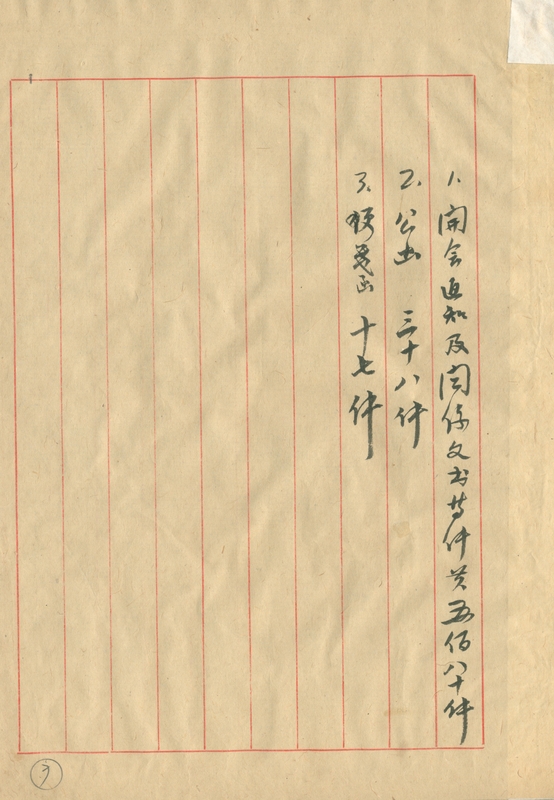 1. 開会通知及関係文书等件共五佰八十件
2. 公函 三十八件
3. 便箋函 十七件